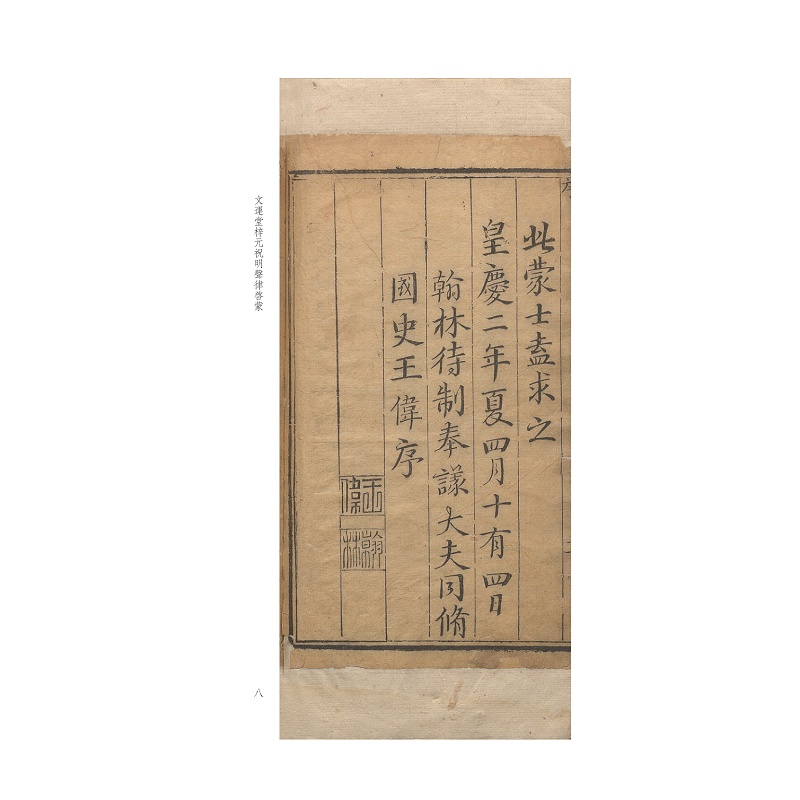 此蒙士盍求之
皇慶二年夏四月十有四日
翰林待制奉議大夫同脩
國史王偉序
王偉
翰林
文運堂梓元祝明聲律啓蒙
八